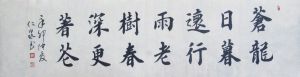 蒼龍
日暮
還行
雨老
樹春
深更
著花
辛卯仲夏